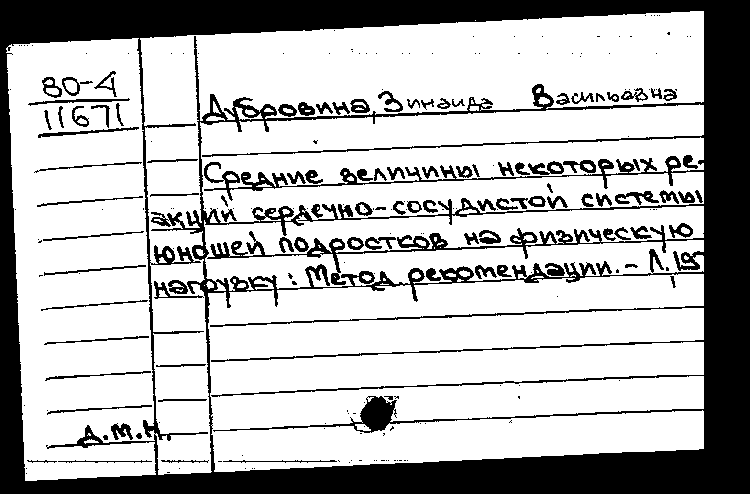 80-4
11671
Дубровина, Зинаида Васильевна
Средние величины некоторых ре-
акций сердечно-сосудистой системы
юношей подростков на физическую
нагрузку: Метод. рекомендации. - Л.
Д.М.Н.